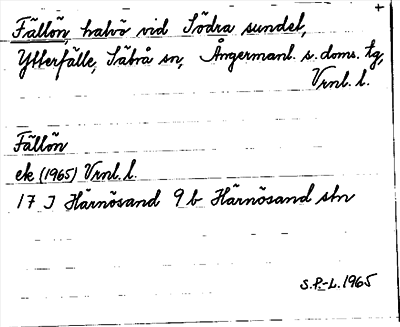 +
Fällön, halvö vid Södra sundet,
Ytterfälle, Säbrå sn, Ångermanl. s. doms. tg,
Vrnl. l.
Fällön
ek (1965) Vrnl. l.
17 J Härnösand 9 b Härnösand stn
S.P.-L. 1965